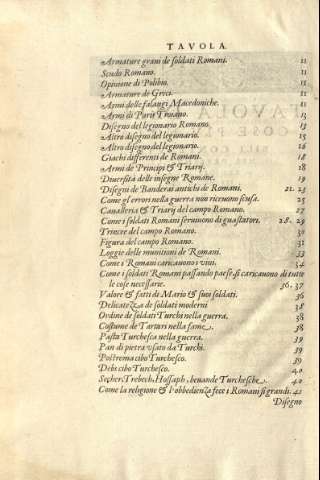 TAVOLA.
Armature graui de soldati Romani. 11
Scudo Romano. 11
Opinione di Polibio. 11
Armature de Greci. 11
Armi delle falangi Macedoniche. 11
Armi di Parti Troiano. 13
Disegno del legionario Romano. 13
Altro disegno del legionario. 15
Altro disegno del legionario. 16
Giachi differenti de Romani. 18
Armi de Principi & Triarij. 18
Diuersità delle insegne Romane. 19
Disegni de Banderai antichi de Romani. 21. 23
Come gl'errori nella guerra non riceuono scusa. 25
Caualleria & Triarij del campo Romano. 27
Come i soldati Romani seruiuono di guastatori. 28. 29
Trincee del campo Romano. 30
Figura del campo Romano. 31
Loggie delle munitioni de Romani. 33
Come i Romani caricauono i viui. 34
Come i soldati Romani passando paese, si caricauono di tutte
le cose necessarie. 36. 37
Valore & fatti di Mario & suoi soldati. 36
Delicatezza de soldati moderni 38
Ordine de soldati Turchi nella guerra. 38
Costume de Tartari nella fame. 38
Pasto Turchesca nella guerra. 39
Pan di pietra vsato da Turchi. 39
Postrema cibo Turchesco. 39
Debs cibo Turchesco. 40
Secher, Trebech, Hossaph, beuande Turchesche. 40
Come la religione & l'obbedienza fece i Romani si grandi. 41
Disegno